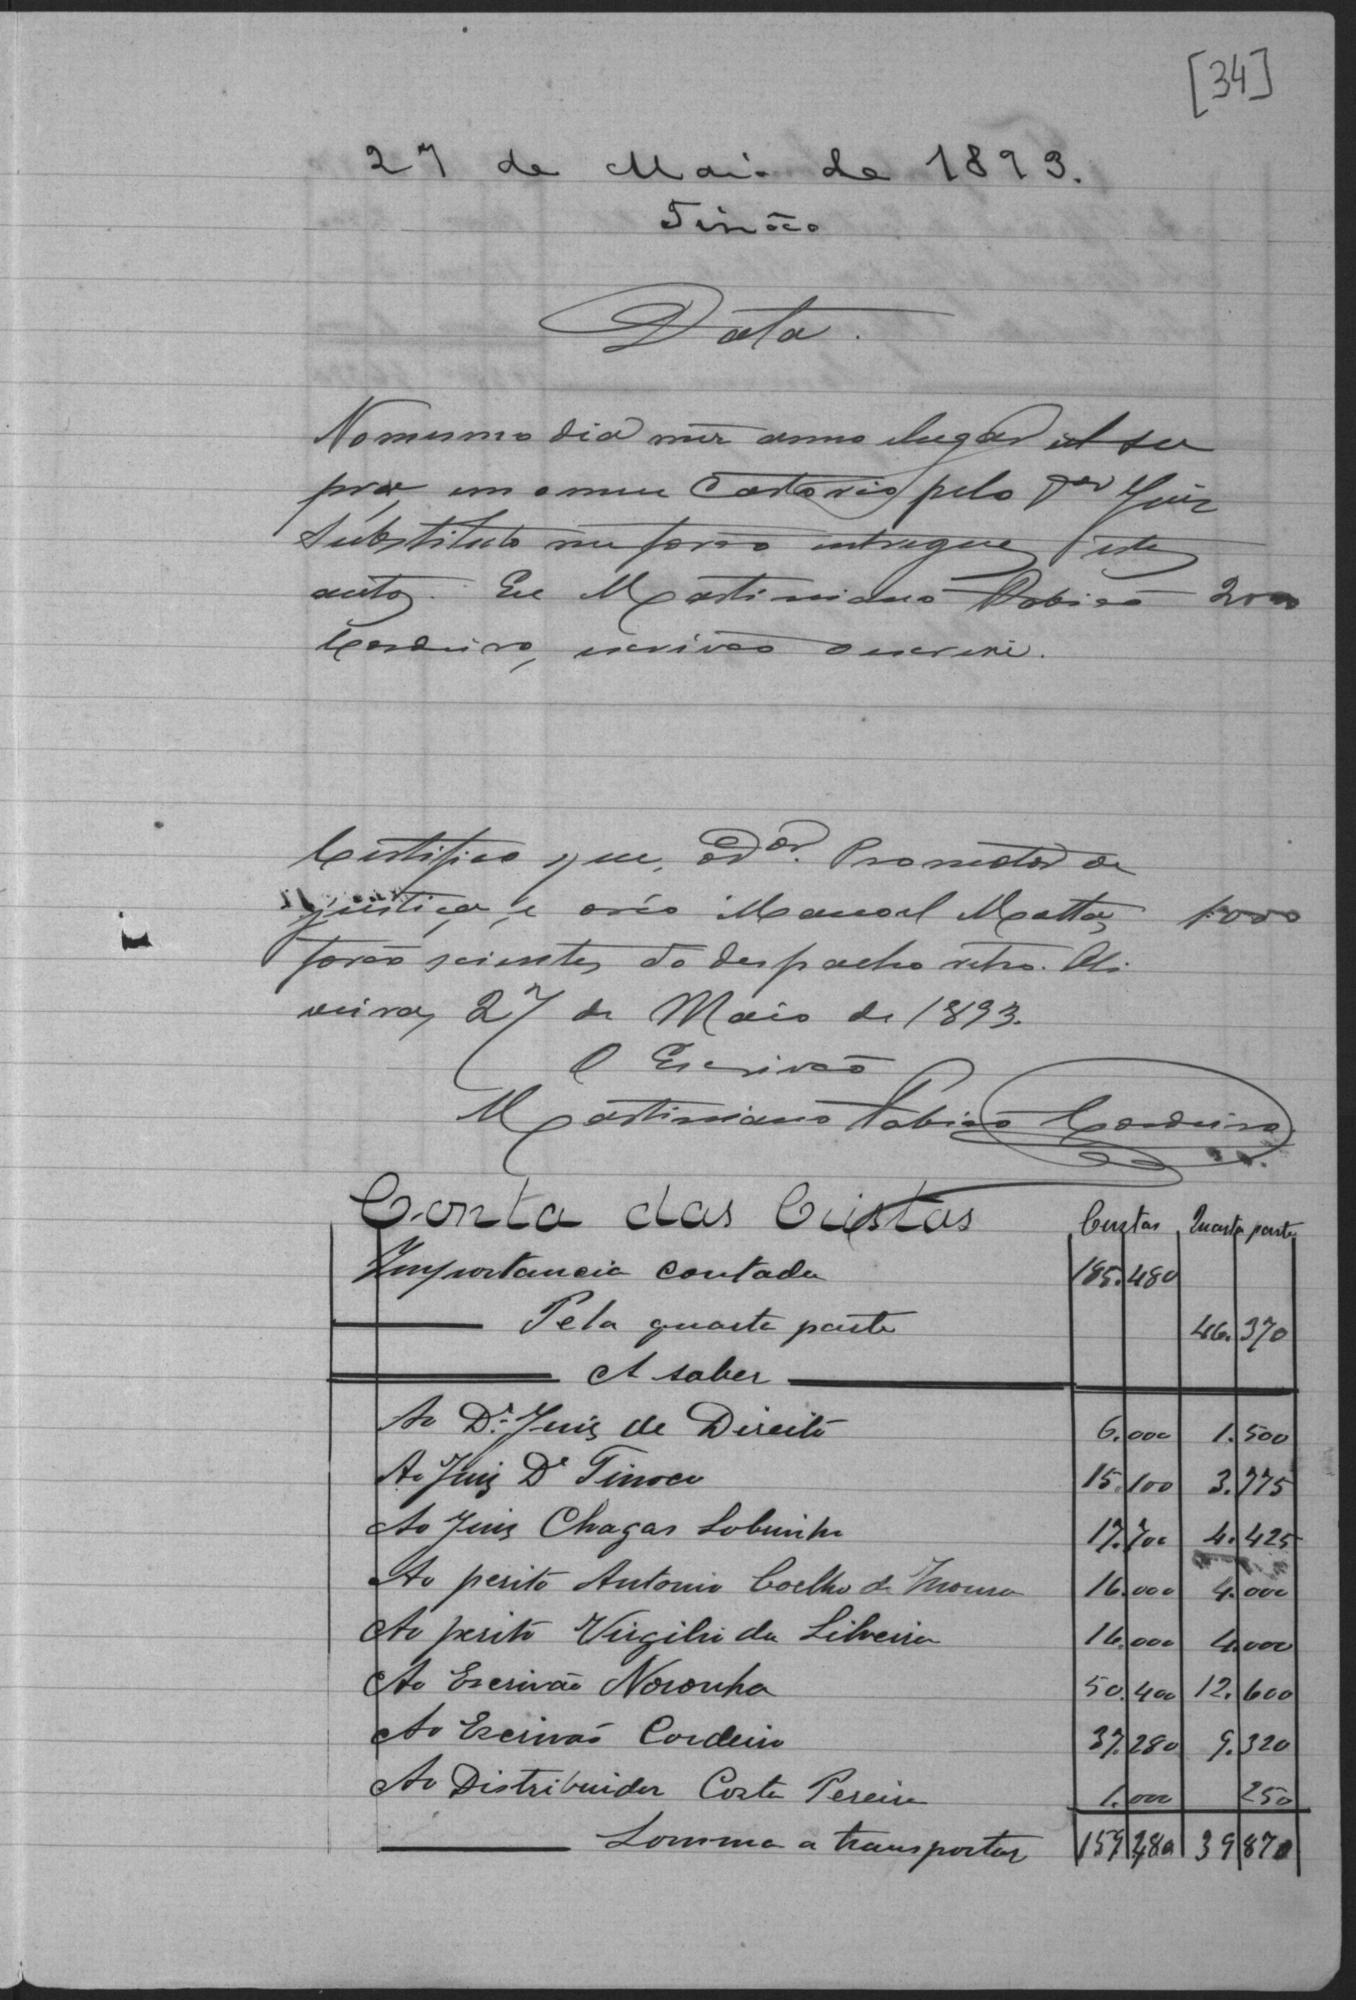 [34]
27 de Maio de 1893.
Tinôco
Data.
No mesmo dia mez anno elugar ut su
pra, em o meu Cartorio pelo Dor Juiz
Substituto me forão entregues estes
autos. Eu Martiniano Robião 2000
Cordeiro, escrivão o escrevi.
Certifico que, o Dor. Promotor de
justiça, e oréo Manoel Mattos, 1.000
forão scientes do despacho retro. Oli
veira, 27 de Maio de 1893.
O Escrivão
Martiniano Cordeiro
Conta das Custas Custas Quarta parte
Importancia contada 185.480
Pela quarta parte 46.370
A saber
Ao Dr. Juiz de Direito 6.000 1.500
Ao Juiz Dr Tinoco 15.100 3.775
Ao Juiz Chagas Sobrinho 17.700 4.425
Ao perito Antonio Coelho de Moura 16.000 4.000
Ao perito Virgilio da Silveira 16.000 4.000
Ao Escrivão Noronha 50.400 12.600
Ao Escrivão Cordeiro 37.280 9.320
Ao Distribuidor Costa Pereira 1.000 250
Somma a transportar 159.480 39.870